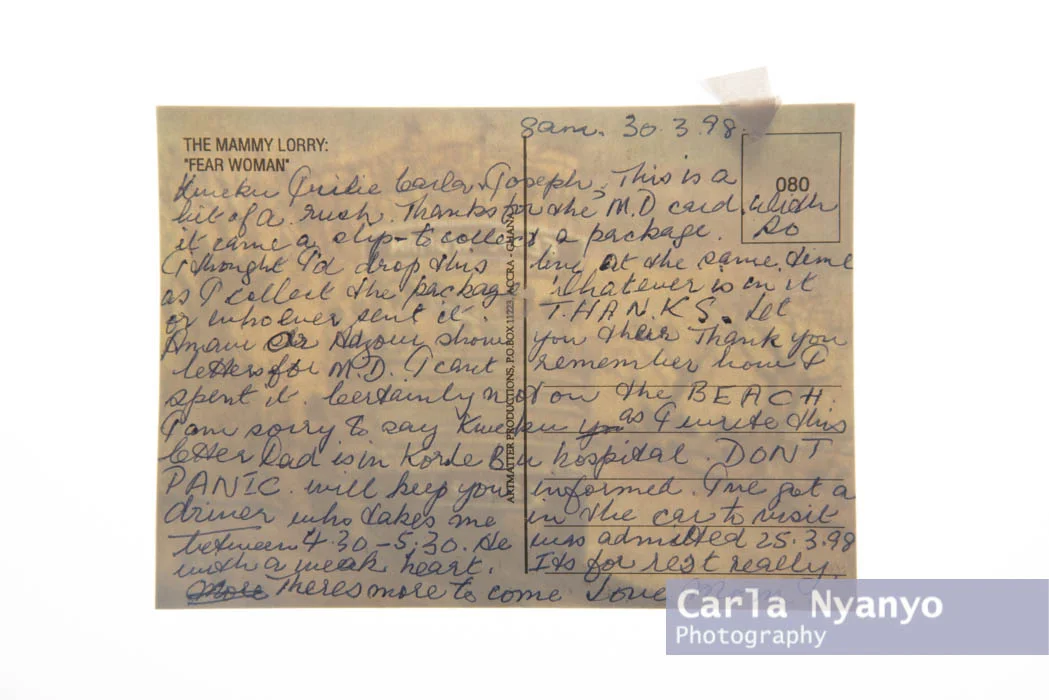 THE MAMMY LORRY:
"FEAR WOMAN"
8am. 30.3.98.
080
Kweku Carla & Joseph, This is a
bit of a rush. Thanks for the M.D card. With
it came a slip - to collect a package. So
I thought I'd drop this line at the same time
as I collect the package whatever is in it
or whoever sent it. T.H.A.N.K.S. Let
show you their Thank you
letters for M.D. I cant remember how I
spent it. Certainly not on the BEACH.
I am sorry to say Kweku as I write this
letter Dad is in Korle Bu hospital. DONT
PANIC. will keep you informed. I've got a
driver who takes me in the car to visit
between 4.30 - 5.30. He was admitted 25.3.98
with a weak heart. Its for rest really.
More Theres more to come Love Mum
ARTMATTER PRODUCTIONS, P.O.BOX 11223, ACCRA - GHANA
Carla Nyanyo
Photography